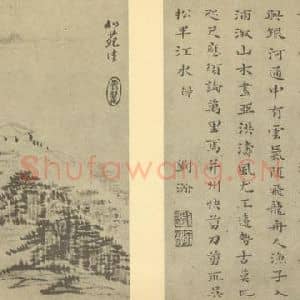 與銀河通中有雲氣隨飛龍舟人漁子入
浦溆山木盡亞洪濤風尤工遠勢古莫比
咫尺應須論萬里焉得并州快剪刀剪取吳
松半江水
Shufawang.CN